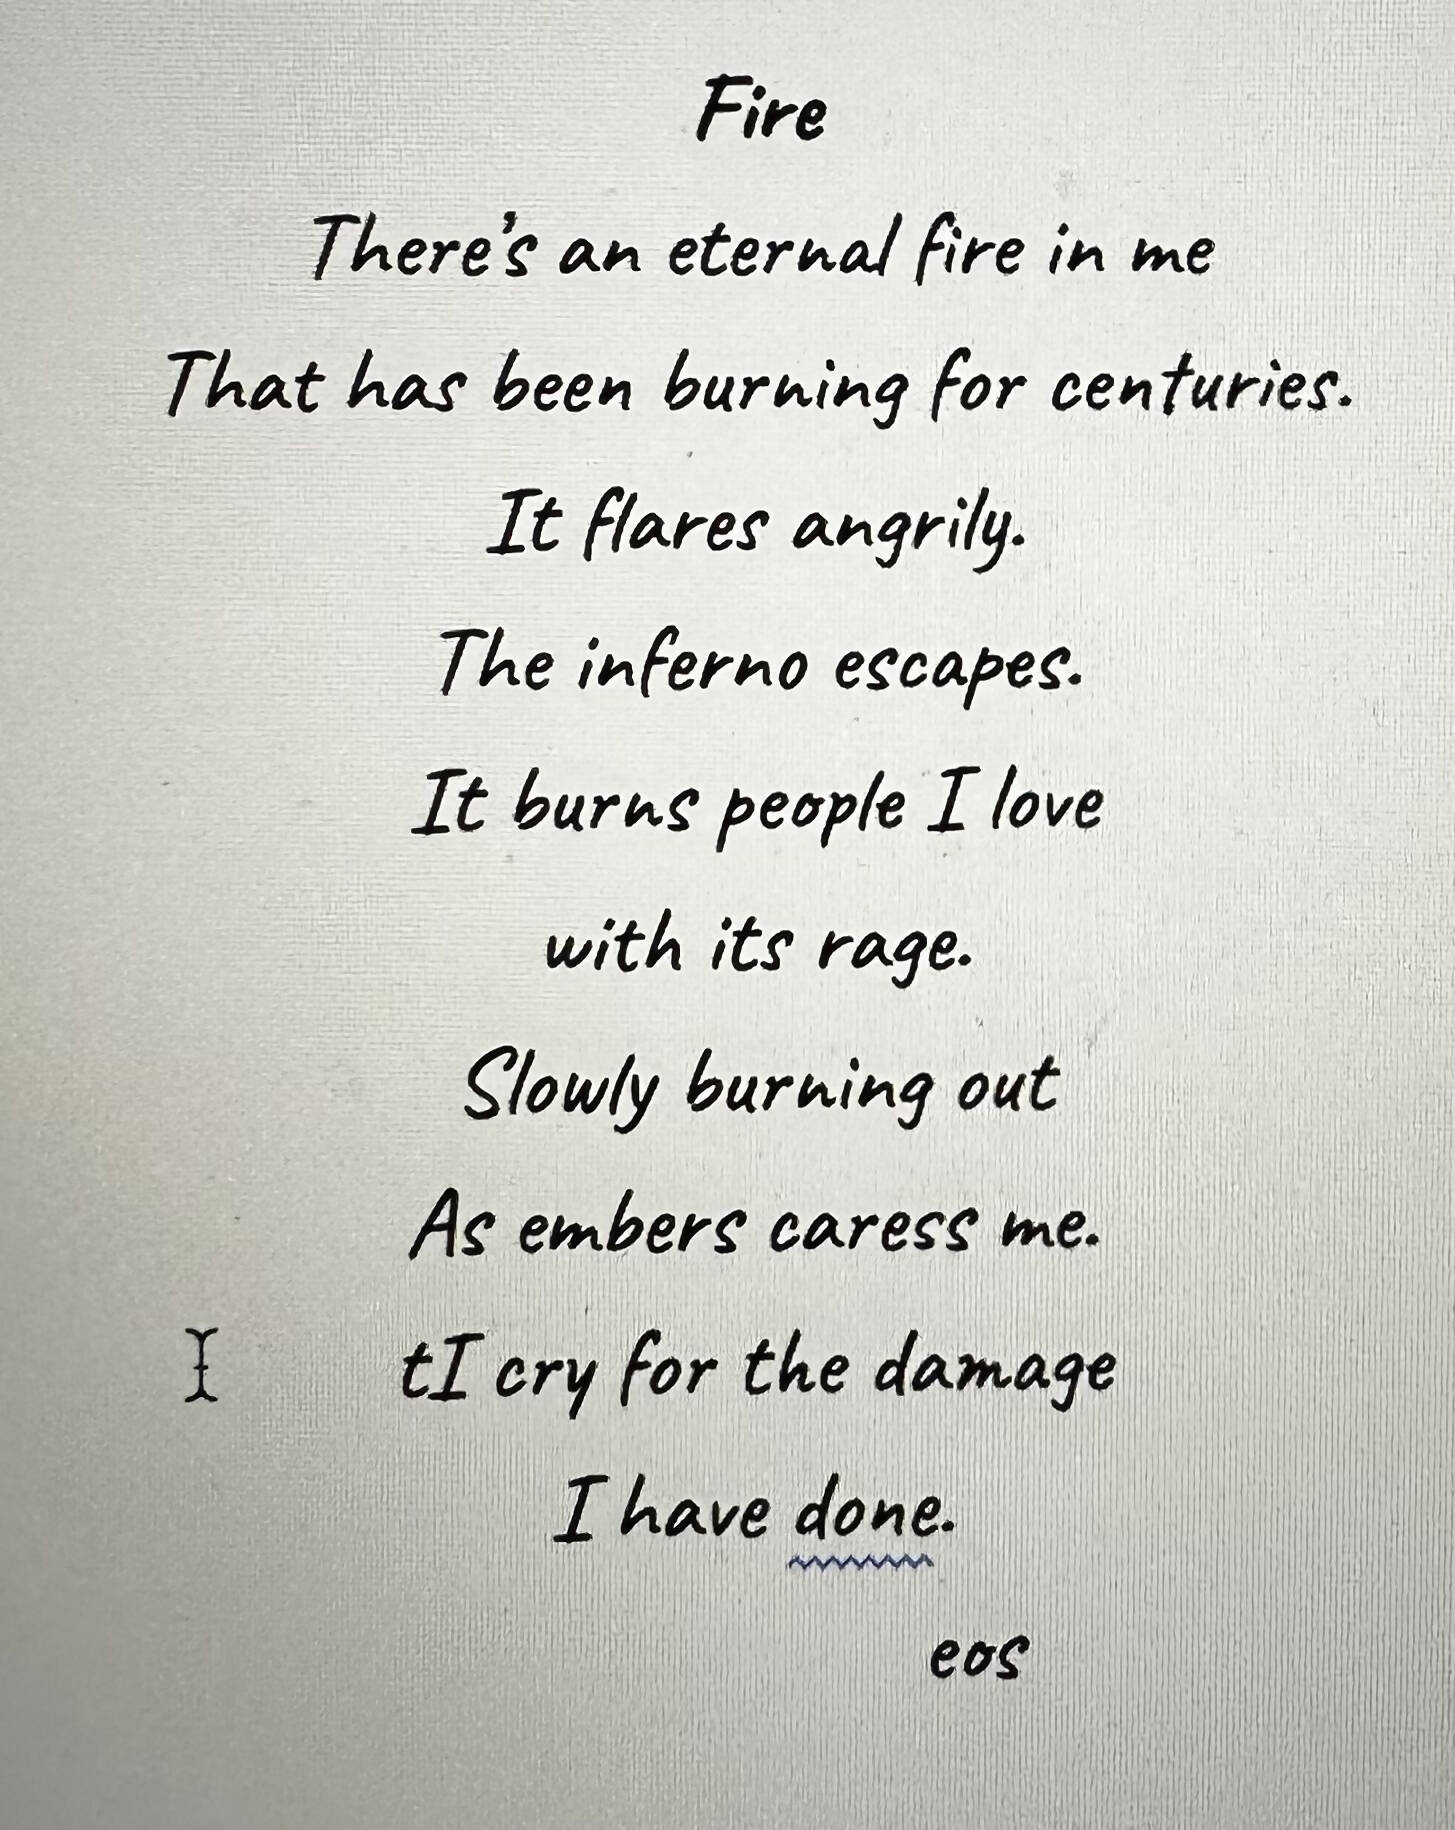 Fire
There's an eternal fire in me
That has been burning for centuries.
It flares angrily.
The inferno escapes.
It burns people I love
with its rage.
Slowly burning out
As embers caress me.
tI cry for the damage
I have done.
eos